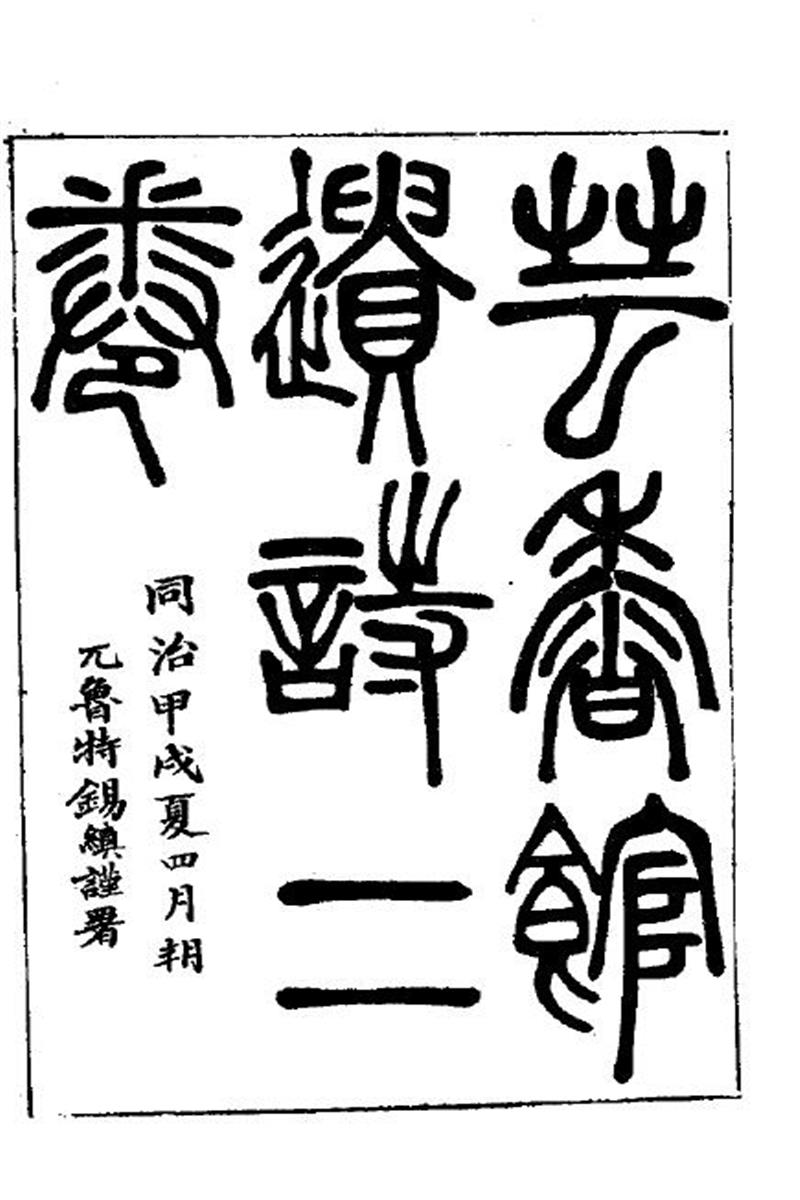 芸香館
遺詩二
卷
同治甲戌夏四月朔
兀魯特錫縝謹署